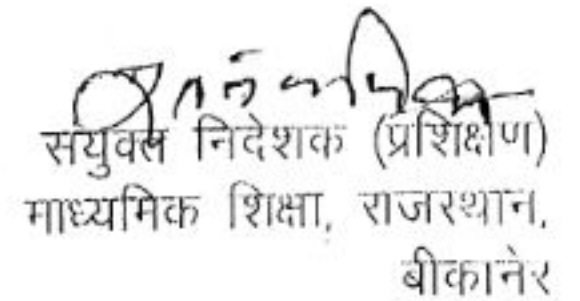 संयुक्त निदेशक (प्रशिक्षण)
माध्यमिक शिक्षा, राजस्थान,
बीकानेर